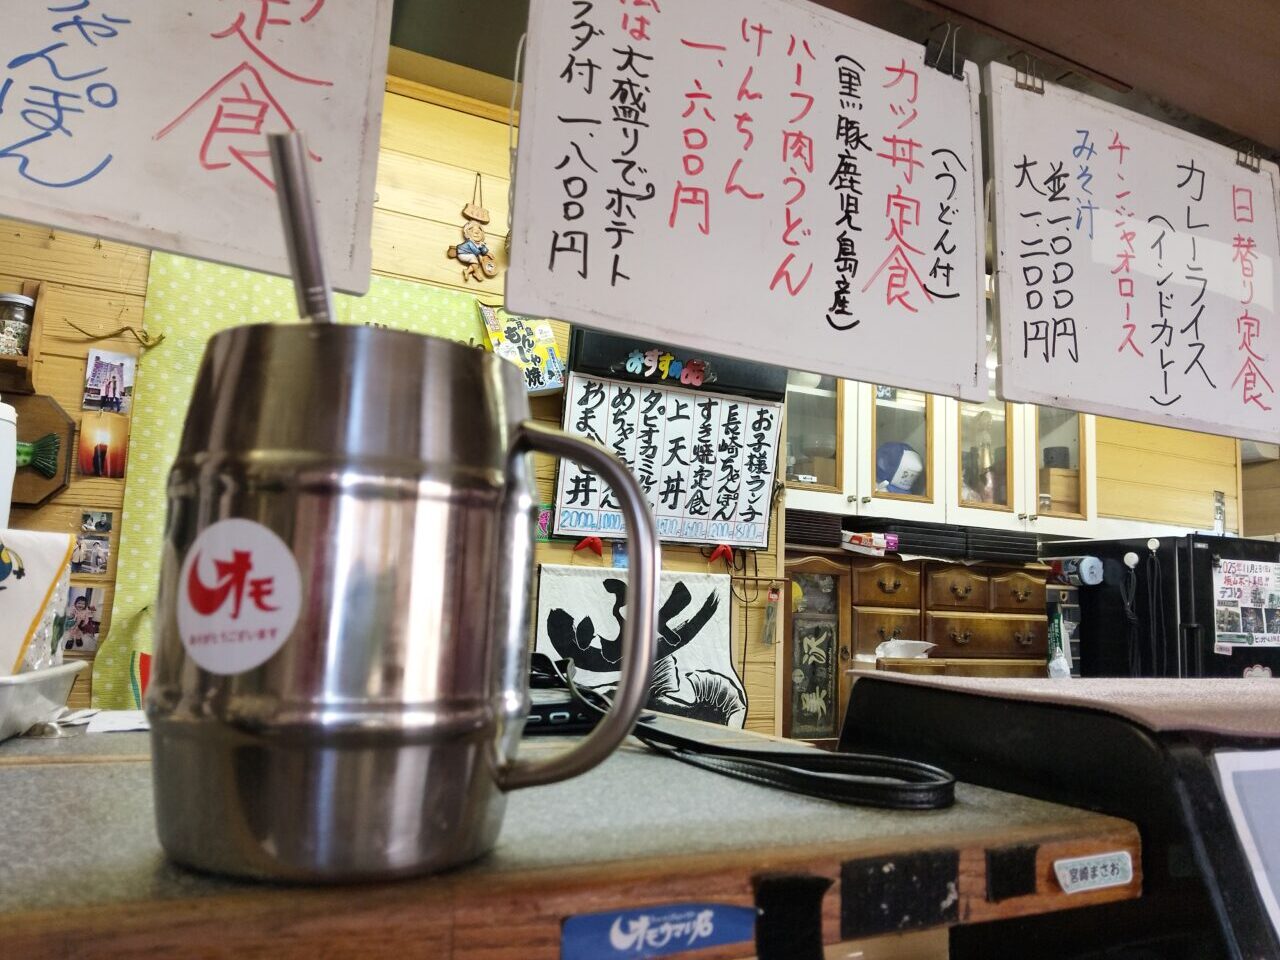 日替り定食
カレーライス
(インドカレー)
チンジャオロース
みそ汁
並一、000円
大一、二00円
(うどん付)
カツ丼定食
(黒豚鹿児島産)
ハーフ肉うどん
けんちん
一、六00円
は大盛りでポテト
ラダ付 一、八00円
定食
ゃんぽん
おすすめ品
お子様ランチ
長崎ちゃんぽん
すき焼定食
上天丼
2000
もんじゃ焼
オモ
ありがとうございます
オモウマい店
宮崎まさお
2025年11月